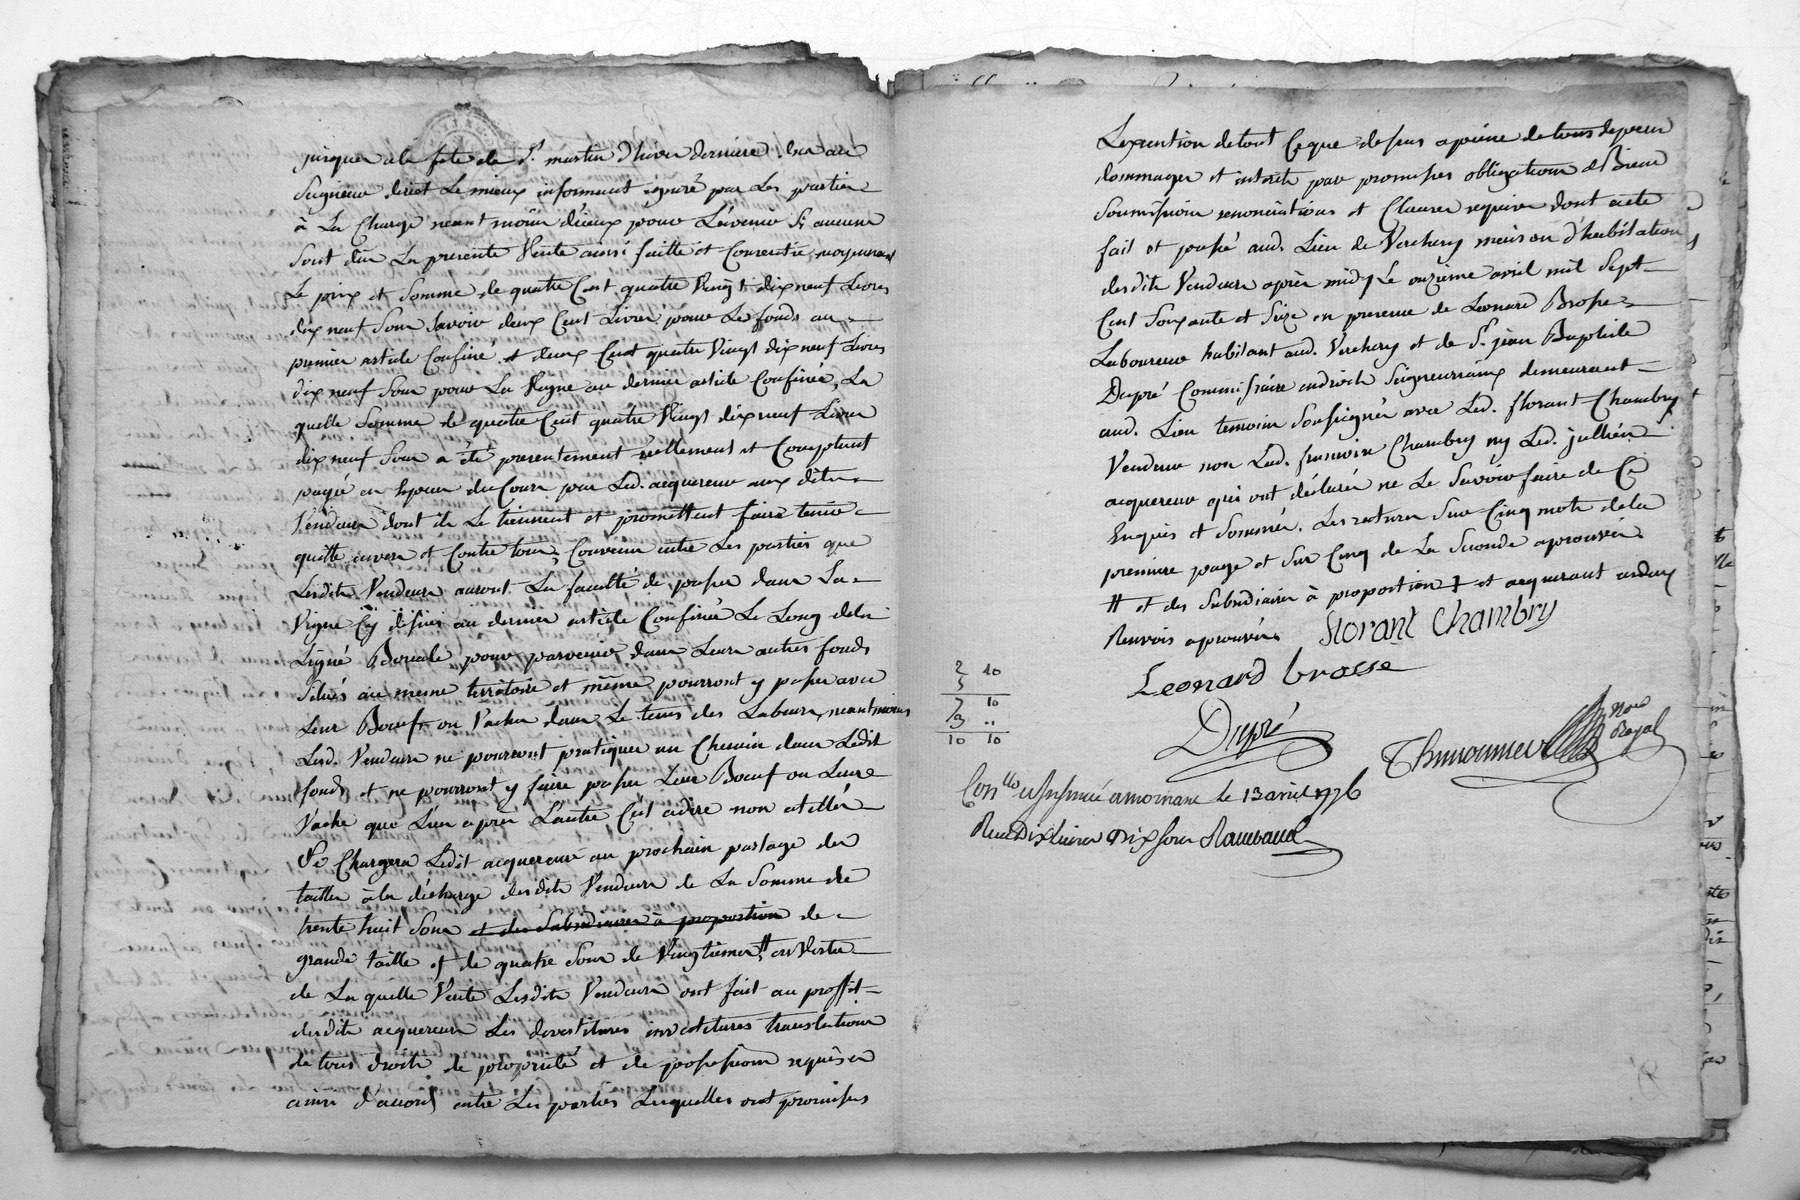 jusques a la fete de St. martin d'hiver derniere
Seigneur direct Le mieux informant ignoré par Les parties
à La Charge neantmoins d'iceux pour L'avenir Si aucuns
Sont dûs La presente Vente ainsi faitte et Convenüe moyennant
Le prix et Somme de quatre Cent quatre Vingt dix neuf Livres
dix neuf Sous Savoir deux Cent Livres pour Le fonds au
premier article Confiné et deux Cent quatre Vingt dix neuf Livres
dix neuf Sous pour La Vigne au dernier article Confinée, La
quelle Somme de quatre Cent quatre Vingt dix neuf Livres
dix neuf Sous a été presentement réellement et Comptant
payé en Especes du Cours par Led. acquereur aux dits
Vendeurs dont ils Le tiennent et promettent faire tenir
quitte envers et Contre tous, Convenu entre Les parties que
Lesdits Vendeurs auront La faculté de passer dans La
Vigne Cy dessus au dernier article Confinée Le Long de la
Ligne Boreale pour parvenir dans Leurs autres fonds
Situés au meme territoire et même pourront y passer avec
Leur Boeufs ou Vaches dans Le tems des Labeurs, neantmoins
Lesd. Vendeurs ne pourront pratiquer un Chemin dans Ledit
fonds et ne pourront y faire passer Leur Boeuf ou Leurs
Vache que L'un apres L'autre C'est adire non attellés
Se Chargera Ledit acquereur au prochain partage des
tailles à la décharge desdits Vendeurs de La Somme de
trente huit Sous et des Subsidiaires à proportion de
grande taille et de quatre Sous de Vingtiemes # en Vertu
de La quelle Vente Lesdits Vendeurs ont fait au proffit
desdits acquereurs Les devestitures investitures translations
de tous droits de propriété et de possession requises
ainsi d'accord entre Les parties Lesquelles ont promis
L'exécution de tout Ce que dessus a peine de tous depens
dommages et interets par promesses obligations de Biens
Soumissions renonciations et Clauses requises dont acte
fait et passé aud. Lieu de Verchery maison d'habitation
desdits Vendeurs après midy Le onzième avril mil Sept
Cent Soixante et Size en presence de Leonard Brosse
Laboureur habitant aud. Verchery et de Sr. jean Baptiste
Dupré Commissaire endroits Seigneuriaux demeurant
aud. Lieu temoins Soussignés avec Led. florant Chambry
Vendeur non Led. francoise Chambry ny Led. jullien
acquereur qui ont déclarés ne Le Savoir faire de Ce
Enquis et Sommés. Les ratures Sur Cinq mots de la
premiere page et Sur Cinq de La Seconde aprouvés.
# et des Subsidiaires à proportion ‡ et acquerant
Renvois aprouvés florant Chambry
Leonard brosse
2 10
5
7 10
3 ..
10 10
Dupré
Royal
Conllé et Insinué le 13 avril 1776
Recu Dix livres Dix sous Rambaud